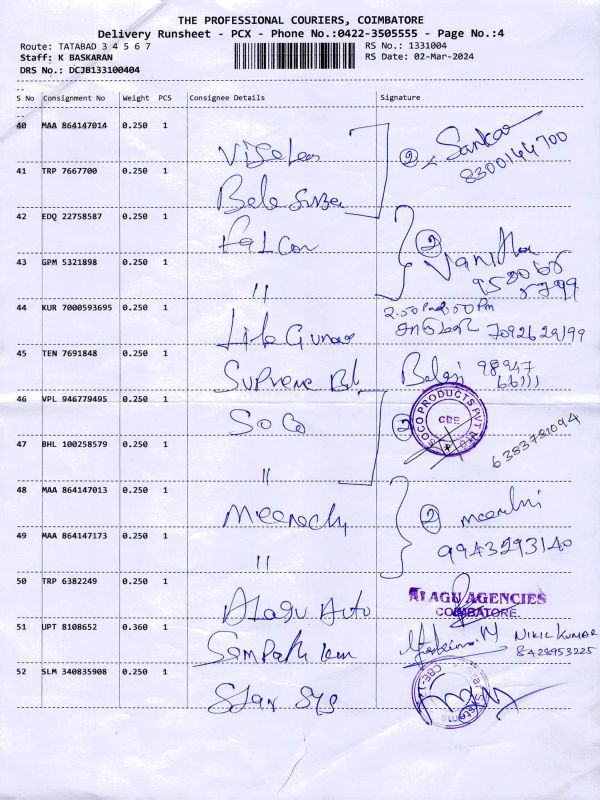 THE PROFESSIONAL COURIERS, COIMBATORE
Delivery Runsheet - PCX - Phone No.:0422-3505555 - Page No.:4
Route: TATABAD 3 4 5 6 7
RS No.: 1331004
Staff: K BASKARAN
RS Date: 02-Mar-2024
DRS No.: DCJB133100404
S No Consignment No Weight PCS Consignee Details Signature
40 MAA 864147014 0.250 1
② Sankar
8300144700
41 TRP 7667700 0.250 1
42 EDQ 22758587 0.250 1 Falcon
②
43 GPM 5321898 0.250 1 "
44 KUR 7000593695 0.250 1
7092629199
45 TEN 7691848 0.250 1 Supreme Balaji 98947
66111
46 VPL 946779495 0.250 1 SoCo ②
COCO PRODUCTS PVT LTD
CBE
6383781094
47 BHL 100258579 0.250 1 "
48 MAA 864147013 0.250 1 Meenachy ②
49 MAA 864147173 0.250 1 "
9943293140
50 TRP 6382249 0.250 1 Alagu Auto
ALAGU AGENCIES
COIMBATORE.
51 UPT 8108652 0.360 1 NIKIL KUMAR
8428953225
52 SLM 340835908 0.250 1 Star Sys